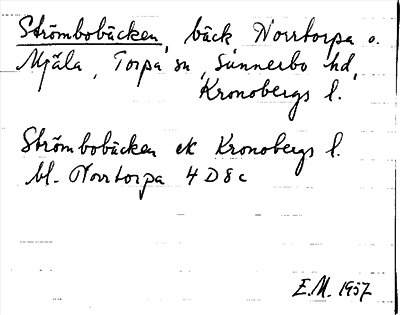 Strömbobäcken, bäck Norrtorpa o.
Mjäla, Torpa sn, Sunnerbo hd,
Kronobergs l.
Strömbobäcken ek Kronobergs l.
bl. Norrtorpa 4D8c
E.M. 1957